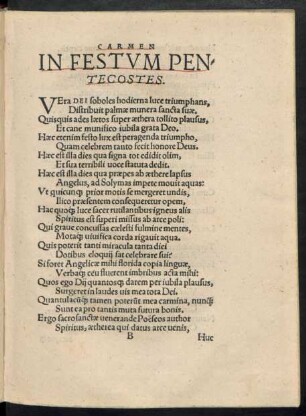 CARMEN
IN FESTVM PEN-
TECOSTES.
VEra DEI soboles hodierna luce triumphans,
Distribuit palmæ munera sancta suæ.
Quisquis ades lætos super æthera tollito plausus,
Et cane munifico iubila grata Deo.
Hæc etenim festo lux est peragenda triumpho,
Quam celebrem tanto fecit honore Deus.
Hæc est illa dies qua signa tot edidit olim,
Et sua terribili voce statuta dedit.
Hæc est illa dies qua præpes ab æthere lapsus
Angelus, ad Solymas impete mouit aquas:
Vt quicunq; prior motis se mergeret undis,
Ilico præsentem consequeretur opem,
Hac quoq; luce sacer rutilantibus igneus alis
Spiritus est superi missus ab arce poli:
Qui graue concussas cælesti fulmine mentes,
Motaq; viuifica corda rigauit aqua.
Quis poterit tanti miracula tanta diei
Dotibus eloquij sat celebrare sui?
Si foret Angelicæ mihi florida copia linguæ,
Verbaq; ceu fluerent imbribus acta mihi:
Quos ego Dij quantosq; darem per iubila plausus,
Surgeret in laudes vis mea tota Dei.
Quantulacūq; tamen poterit mea carmina, nunq̃
Sunt ea pro tantis muta futura bonis.
Ergo sacrosanctæ venerande Poëseos author
Spiritus, ætherea qui datus arce venis,
B
Huc